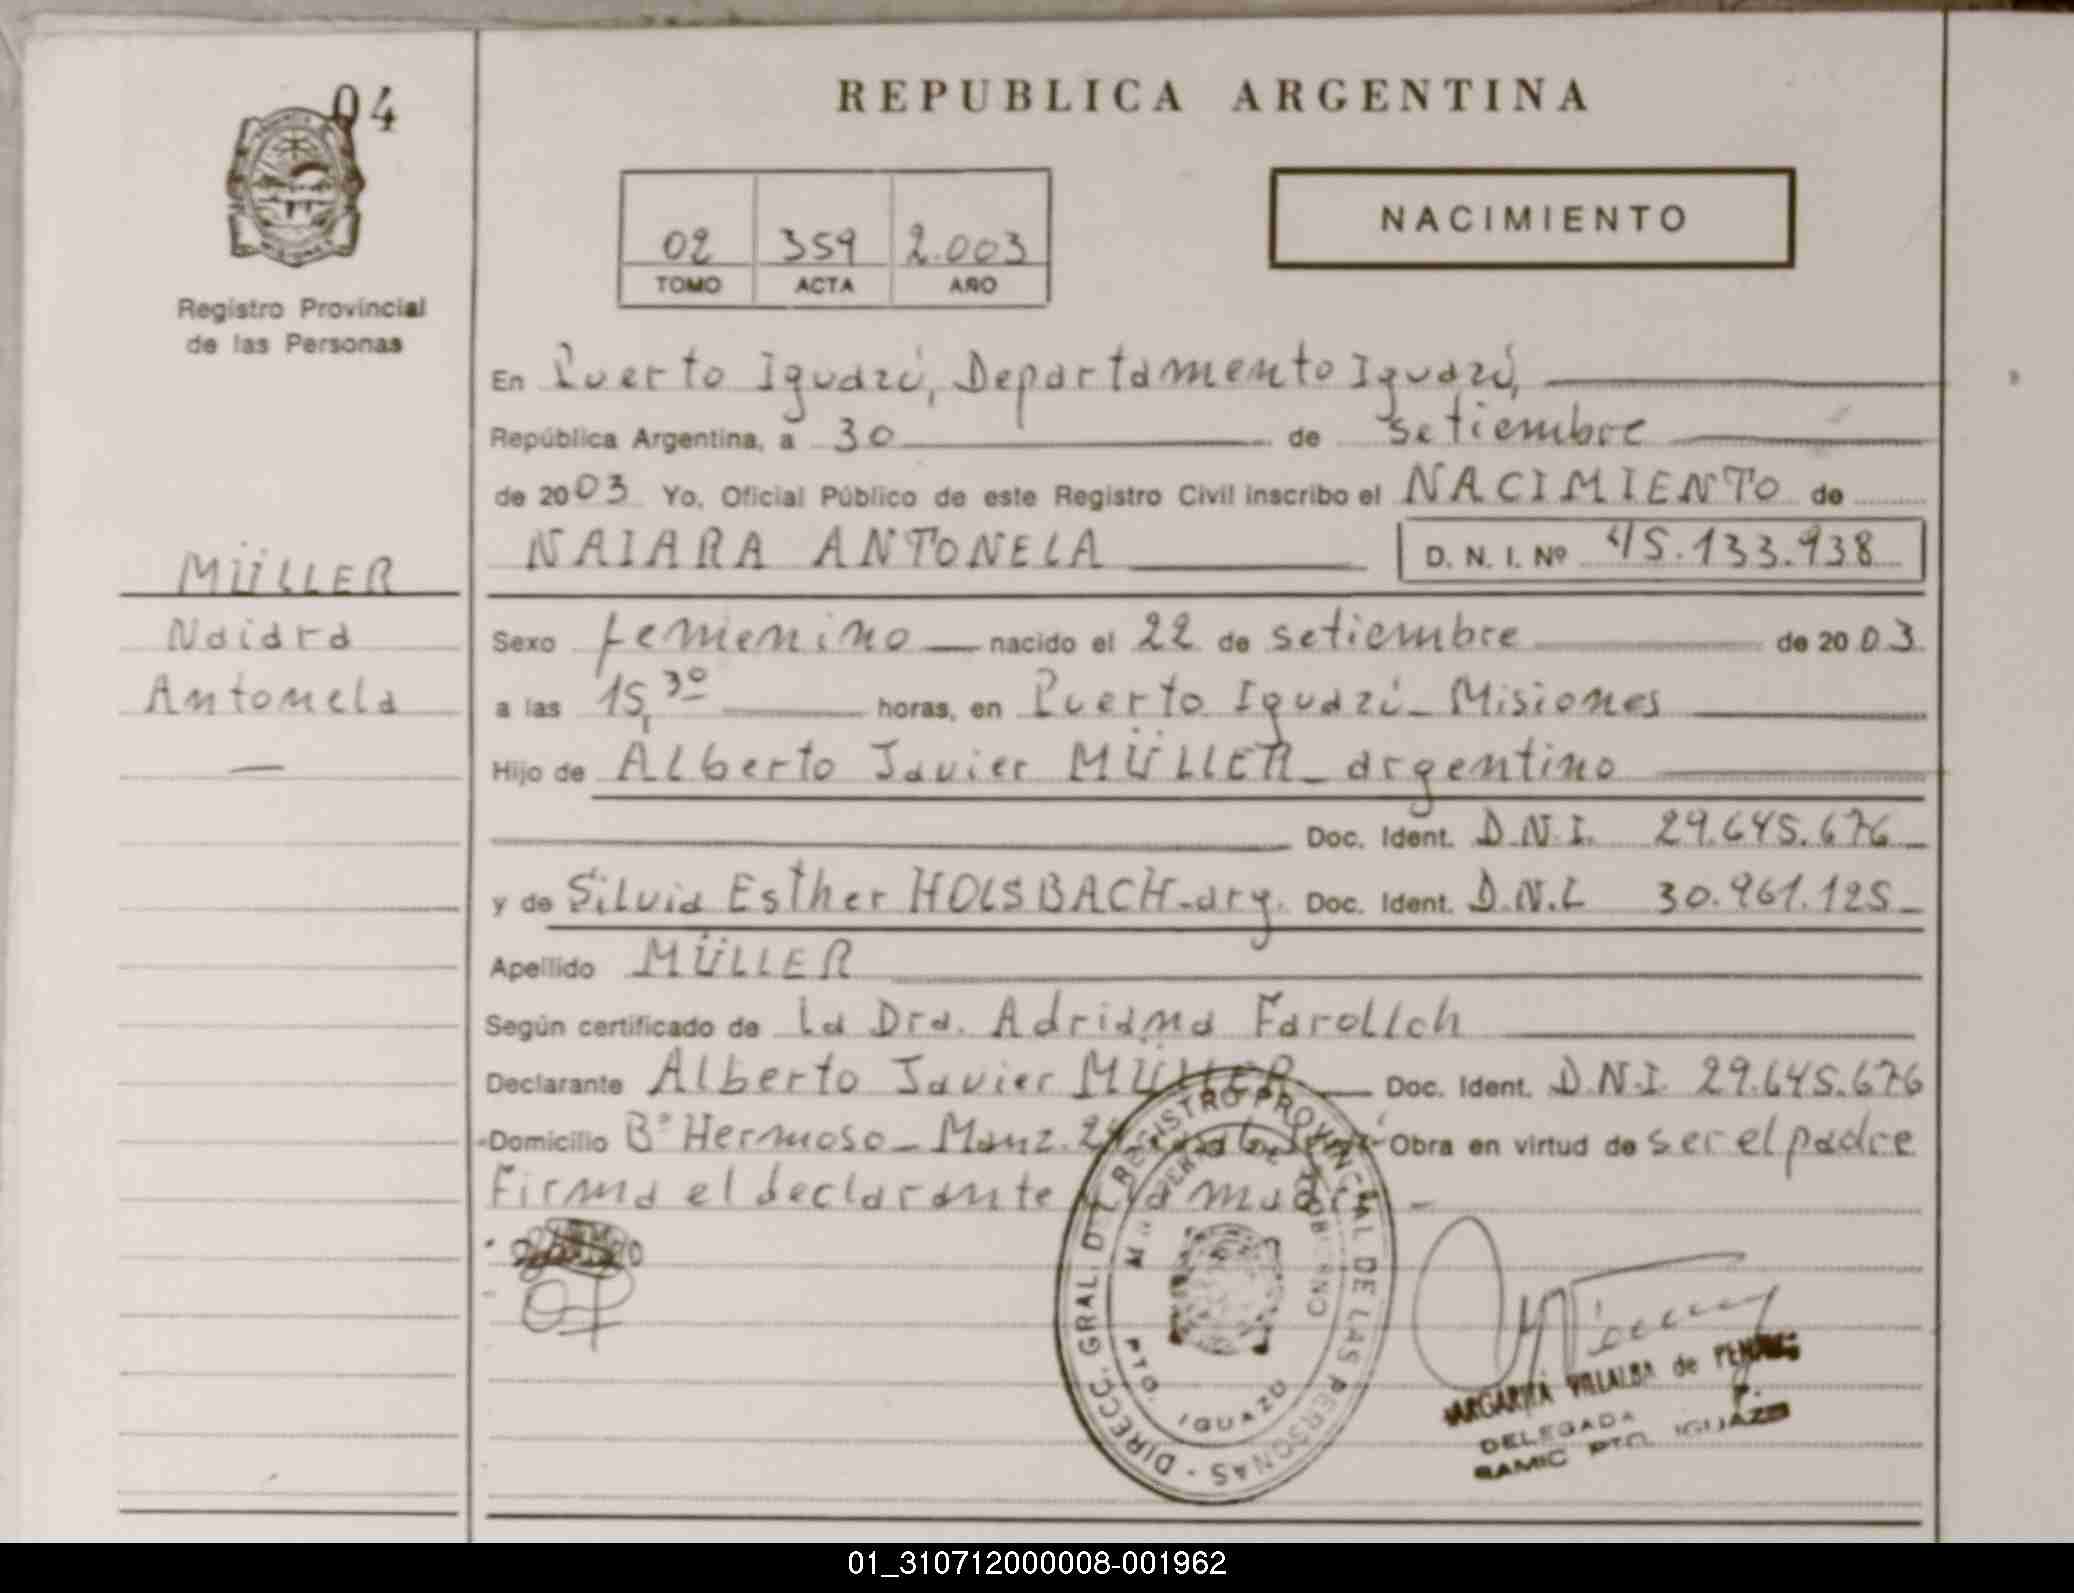 04
Registro Provincial
de las Personas
MÜLLER
Naiara
Antonela
REPUBLICA ARGENTINA
02 359 2.003
TOMO ACTA AÑO
NACIMIENTO
En Puerto Iguazú, Departamento Iguazú,
República Argentina, a 30 de setiembre
de 2003 Yo, Oficial Público de este Registro Civil inscribo el NACIMIENTO de
NAIARA ANTONELA D. N. I. Nº 45.133.938
Sexo femenino nacido el 22 de setiembre de 2003
a las 15,30 horas, en Puerto Iguazú - Misiones
Hijo de Alberto Javier MÜLLER - argentino
Doc. Ident. D.N.I. 29.645.676
y de Silvia Esther HOLSBACH - arg. Doc. Ident. D.N.I. 30.961.125
Apellido MÜLLER
Según certificado de La Dra. Adriana Farollch
Declarante Alberto Javier MÜLLER Doc. Ident. D.N.I. 29.645.676
Domicilio Bº Hermoso - Manz. Obra en virtud de ser el padre
Firma el declarante
DIRECC. GRAL. DEL REGISTRO PROVINCIAL DE LAS PERSONAS -
GOBIERNO
PTO. IGUAZU
MARGARITA VILLALBA de
DELEGADA
SAMIC PTO. IGUAZU
01_310712000008-001962